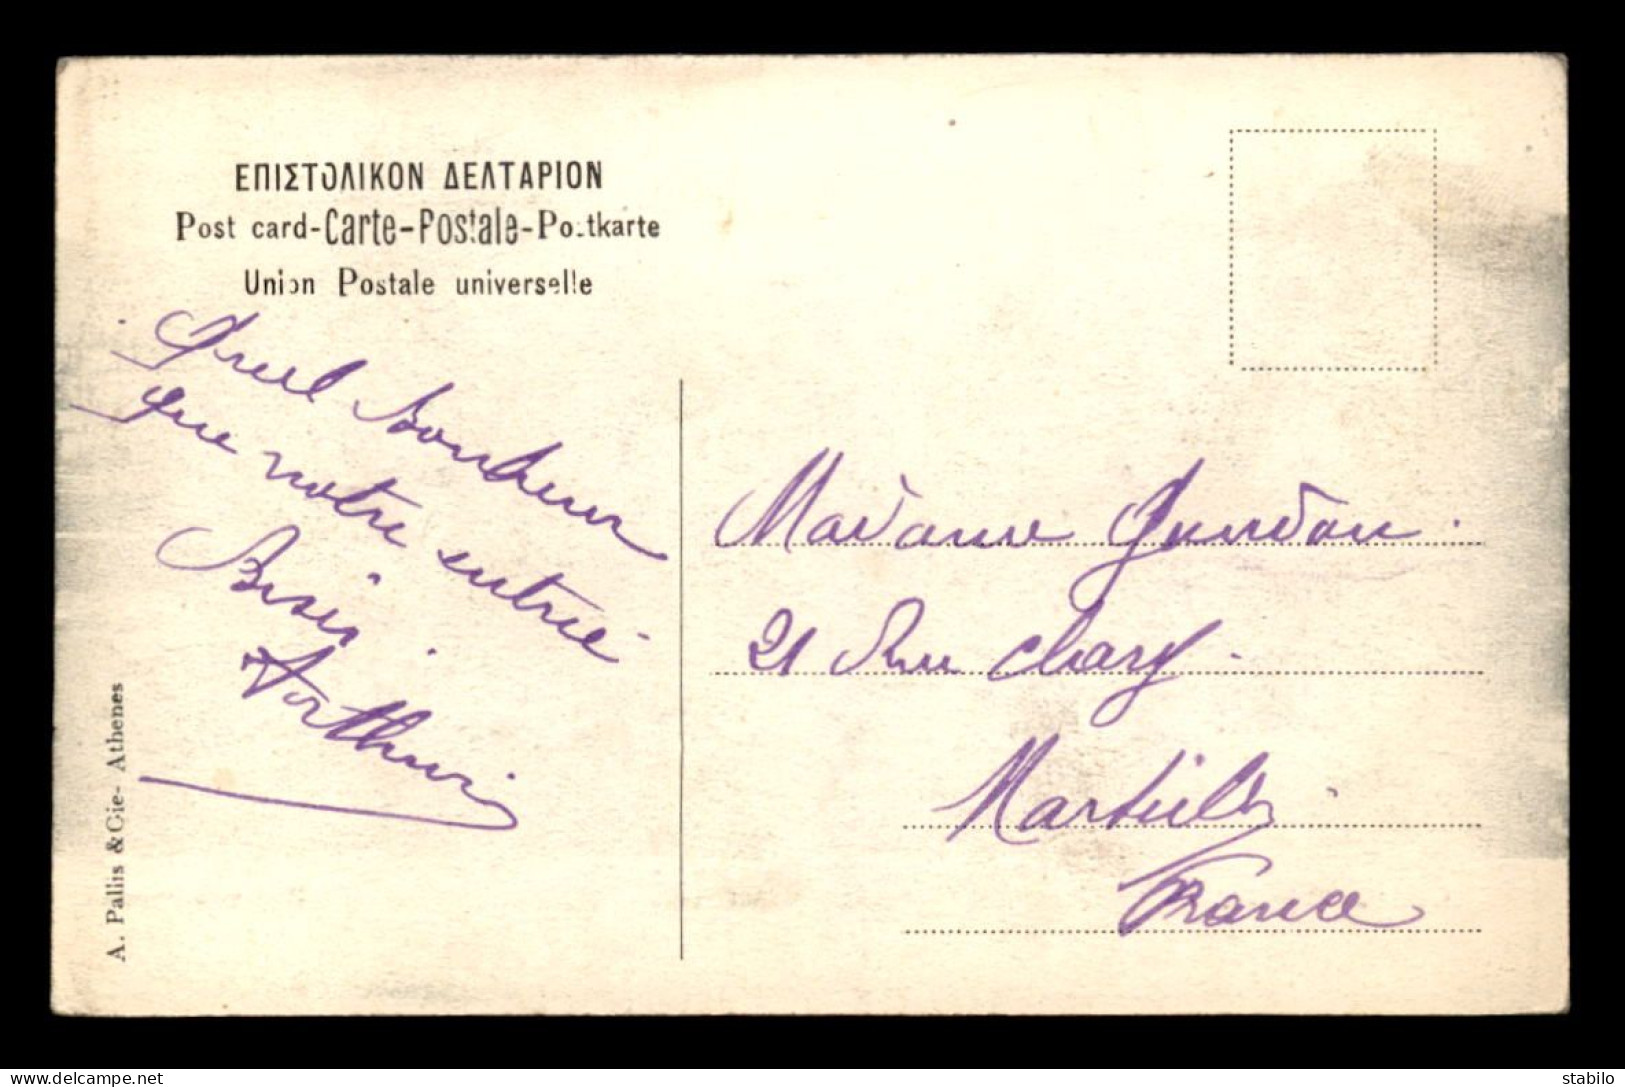 ΕΠΙΣΤΟΛΙΚΟΝ ΔΕΛΤΑΡΙΟΝ
Post card-Carte-Postale-Postkarte
Union Postale universelle
Quel Bonheur
que notre entrée
Arthur
A. Pallis & Cie- Athenes
Madame
21 Rue
Marseille
France
stabilo